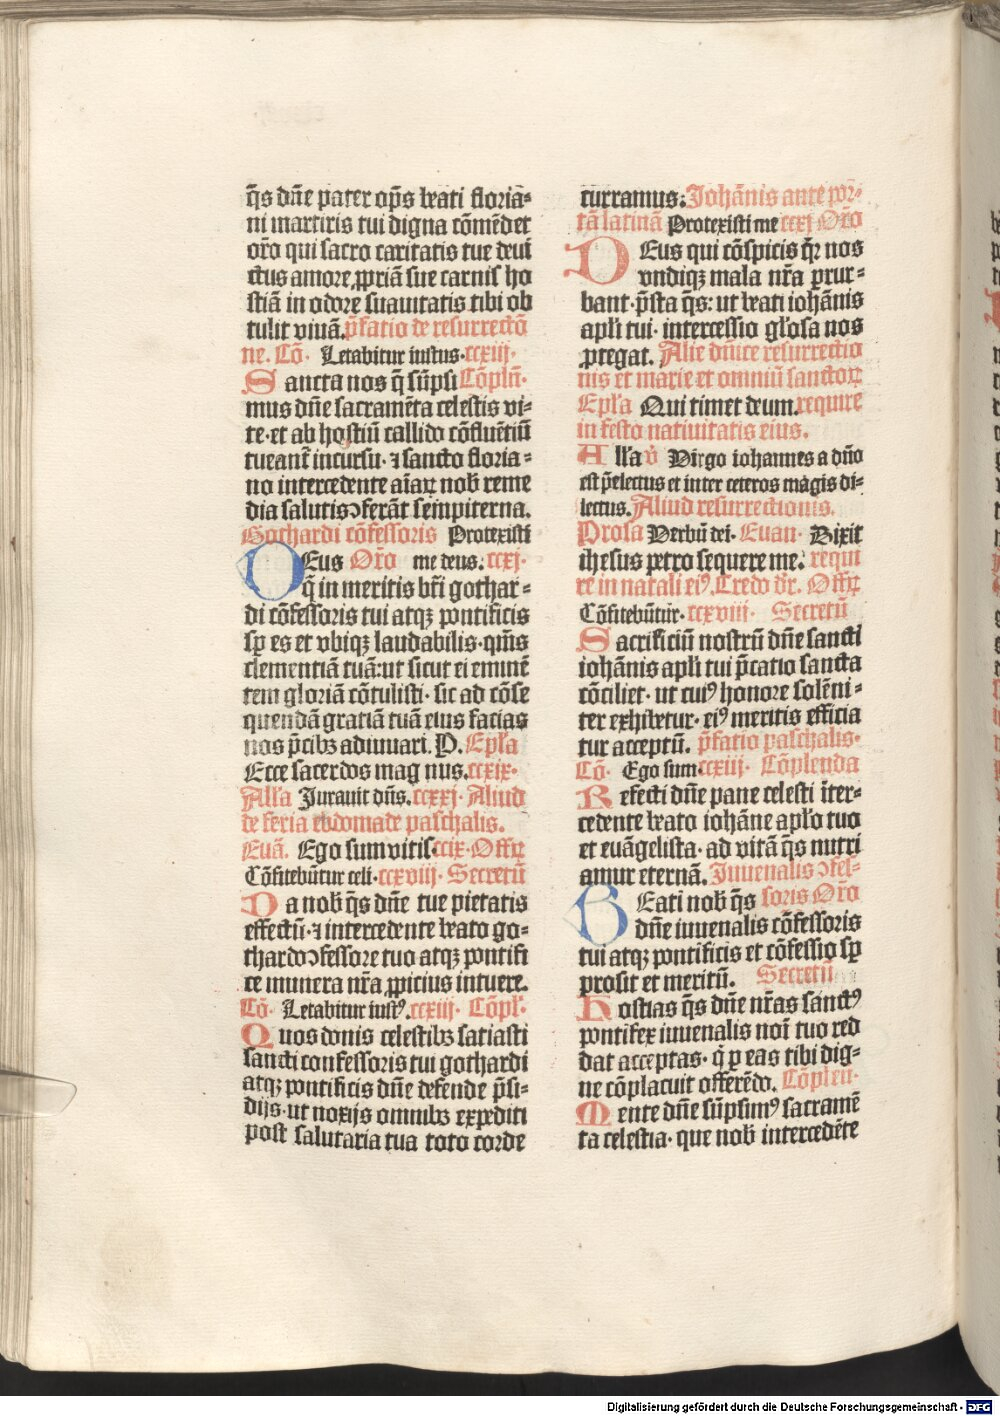 q̄s dn̄e pater op̄s beati floria⸗
ni martiris tui digna cōmēdet
or̄o qui sacro caritatis tue deui
ctus amore, ꝓpriā sue carnis ho
stiā in odore suauitatis tibi ob
tulit viuā. p̄fatio de resurrectō
ne. Cō. Letabitur iustus. ccxiij.
Sancta nos q̄ sūpsi Cōpln̄.
mus dn̄e sacramēta celestis vi⸗
te. et ab hostiū callido cōfluētiū
tueant̄ incursu. ⁊ sancto floria⸗
no intercedente aīaꝝ nob̄ reme
dia salutis ꝯferāt sempiterna.
Gothardi cōfessoris Protexisti
DEus Or̄o me deus. ccxj.
q̄ in meritis bt̄i gothar⸗
di cōfessoris tui atqꝫ pontificis
sꝑ es et vbiqꝫ laudabilis. qm̄s
clementiā tuā: ut sicut ei eminē
tem gloriā cōtulisti. sic ad cōse
quendā gratiā tuā eius facias
nos p̄cibꝫ adiuuari. P. Epl̄a
Ecce sacerdos magnus. ccxix.
All̄a Jurauit dn̄s. ccxxj. Aliud
de feria ebdomade paschalis.
Euā. Ego sum vitis. ccix. Offꝝ
Cōfitebūtur celi. ccxviij. Secretū
Da nob̄ q̄s dn̄e tue pietatis
effectū. ⁊ intercedente beato go⸗
thardo ꝯfessore tuo atqꝫ pontifi
ce munera nr̄a ꝓpicius intuere.
Cō. Letabitur iustꝰ. ccxiij. Cōpl̄.
Quos donis celestibꝫ satiasti
sancti confessoris tui gothardi
atqꝫ pontificis dn̄e defende p̄si⸗
dijs. ut noxijs omnibꝫ expediti
post salutaria tua toto corde
curramus. Johānis ante por̄⸗
tā latinā Protexisti me ccxj Or̄o
DEus qui cōspicis q̄r nos
vndiqꝫ mala nr̄a ꝑtur⸗
bant. p̄sta q̄s: ut beati iohānis
apl̄i tui. intercessio gl̄osa nos
ꝓtegat. Alie dn̄ice resurrectio
nis et marie et omniū sanctoꝝ
Epl̄a Qui timet deum. require
in festo natiuitatis eius.
All̄a v̄ Virgo iohannes a dn̄o
est p̄electus et inter ceteros magis di⸗
lectus. Aliud resurrectionis.
Prosa Verbū dei. Euan. Dixit
ihesus petro sequere me. requi
re in natali eiꝰ. Credo dr̄. Offꝝ
Cōfitebūtur. ccxviij. Secretū
Sacrificiū nostrū dn̄e sancti
iohānis apl̄i tui p̄catio sancta
cōciliet. ut cuiꝰ honore solēni⸗
ter exhibetur. eiꝰ meritis efficia
tur acceptū. p̄fatio paschalis.
Cō. Ego sum. ccxiij. Cōplenda
Refecti dn̄e pane celesti īter⸗
cedente beato iohāne apl̄o tuo
et euāgelista. ad vitā q̄s nutri
amur eternā. Juuenalis ꝯfes⸗
BEati nob̄ q̄s soris Or̄o
dn̄e iuuenalis cōfessoris
tui atqꝫ pontificis et cōfessio sꝑ
prosit et meritū. Secretū
Hostias q̄s dn̄e nr̄as sanctꝰ
pontifex iuuenalis noī tuo red
dat acceptas. q̄ ꝑ eas tibi dig⸗
ne cōplacuit offerēdo. Cōplen.
Mente dn̄e sūpsimꝰ sacramē
ta celestia. que nob̄ intercedēte
Digitalisierung gefördert durch die Deutsche Forschungsgemeinschaft - DFG